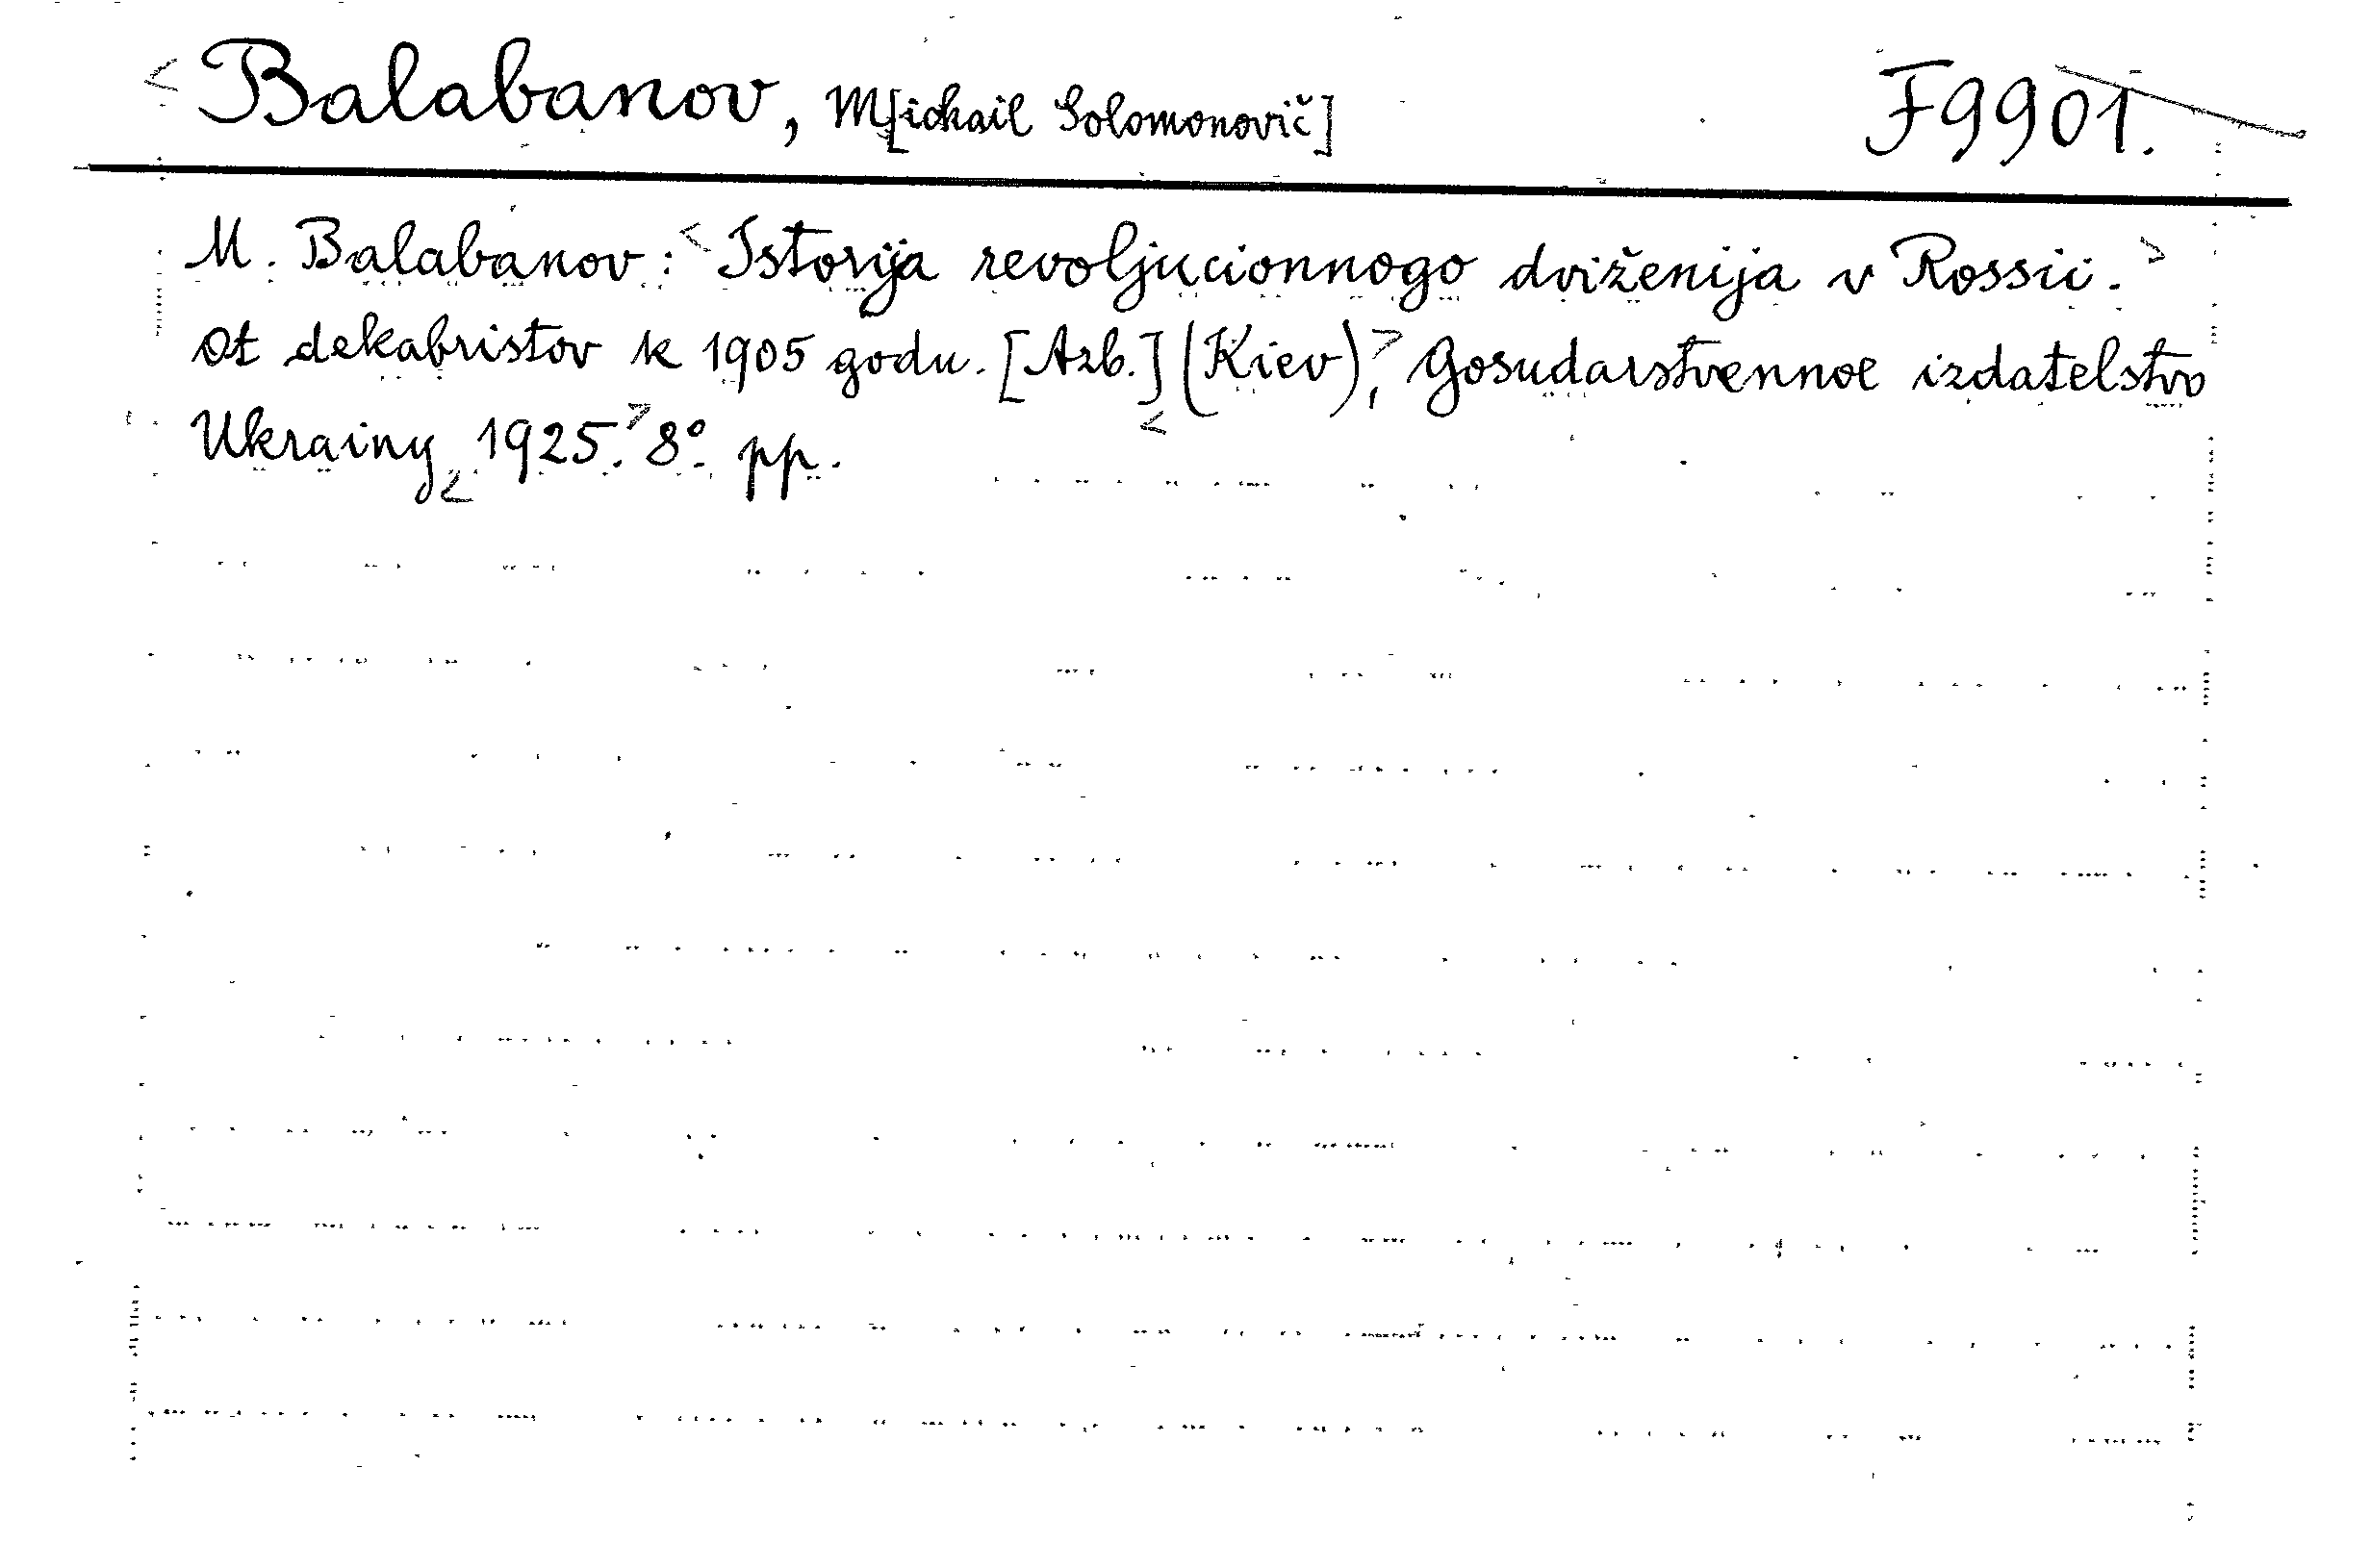 < Balabanov, M[ichail Solomonovič] F9901.
M. Balabanov: < Istorija revoljucionnogo dviženija v Rossii. >
Ot dekabristov k 1905 godu. [Azb.] < (Kiev) >, Gosudarstvennoe izdatelstvo
Ukrainy < 1925. > 8°. pp.